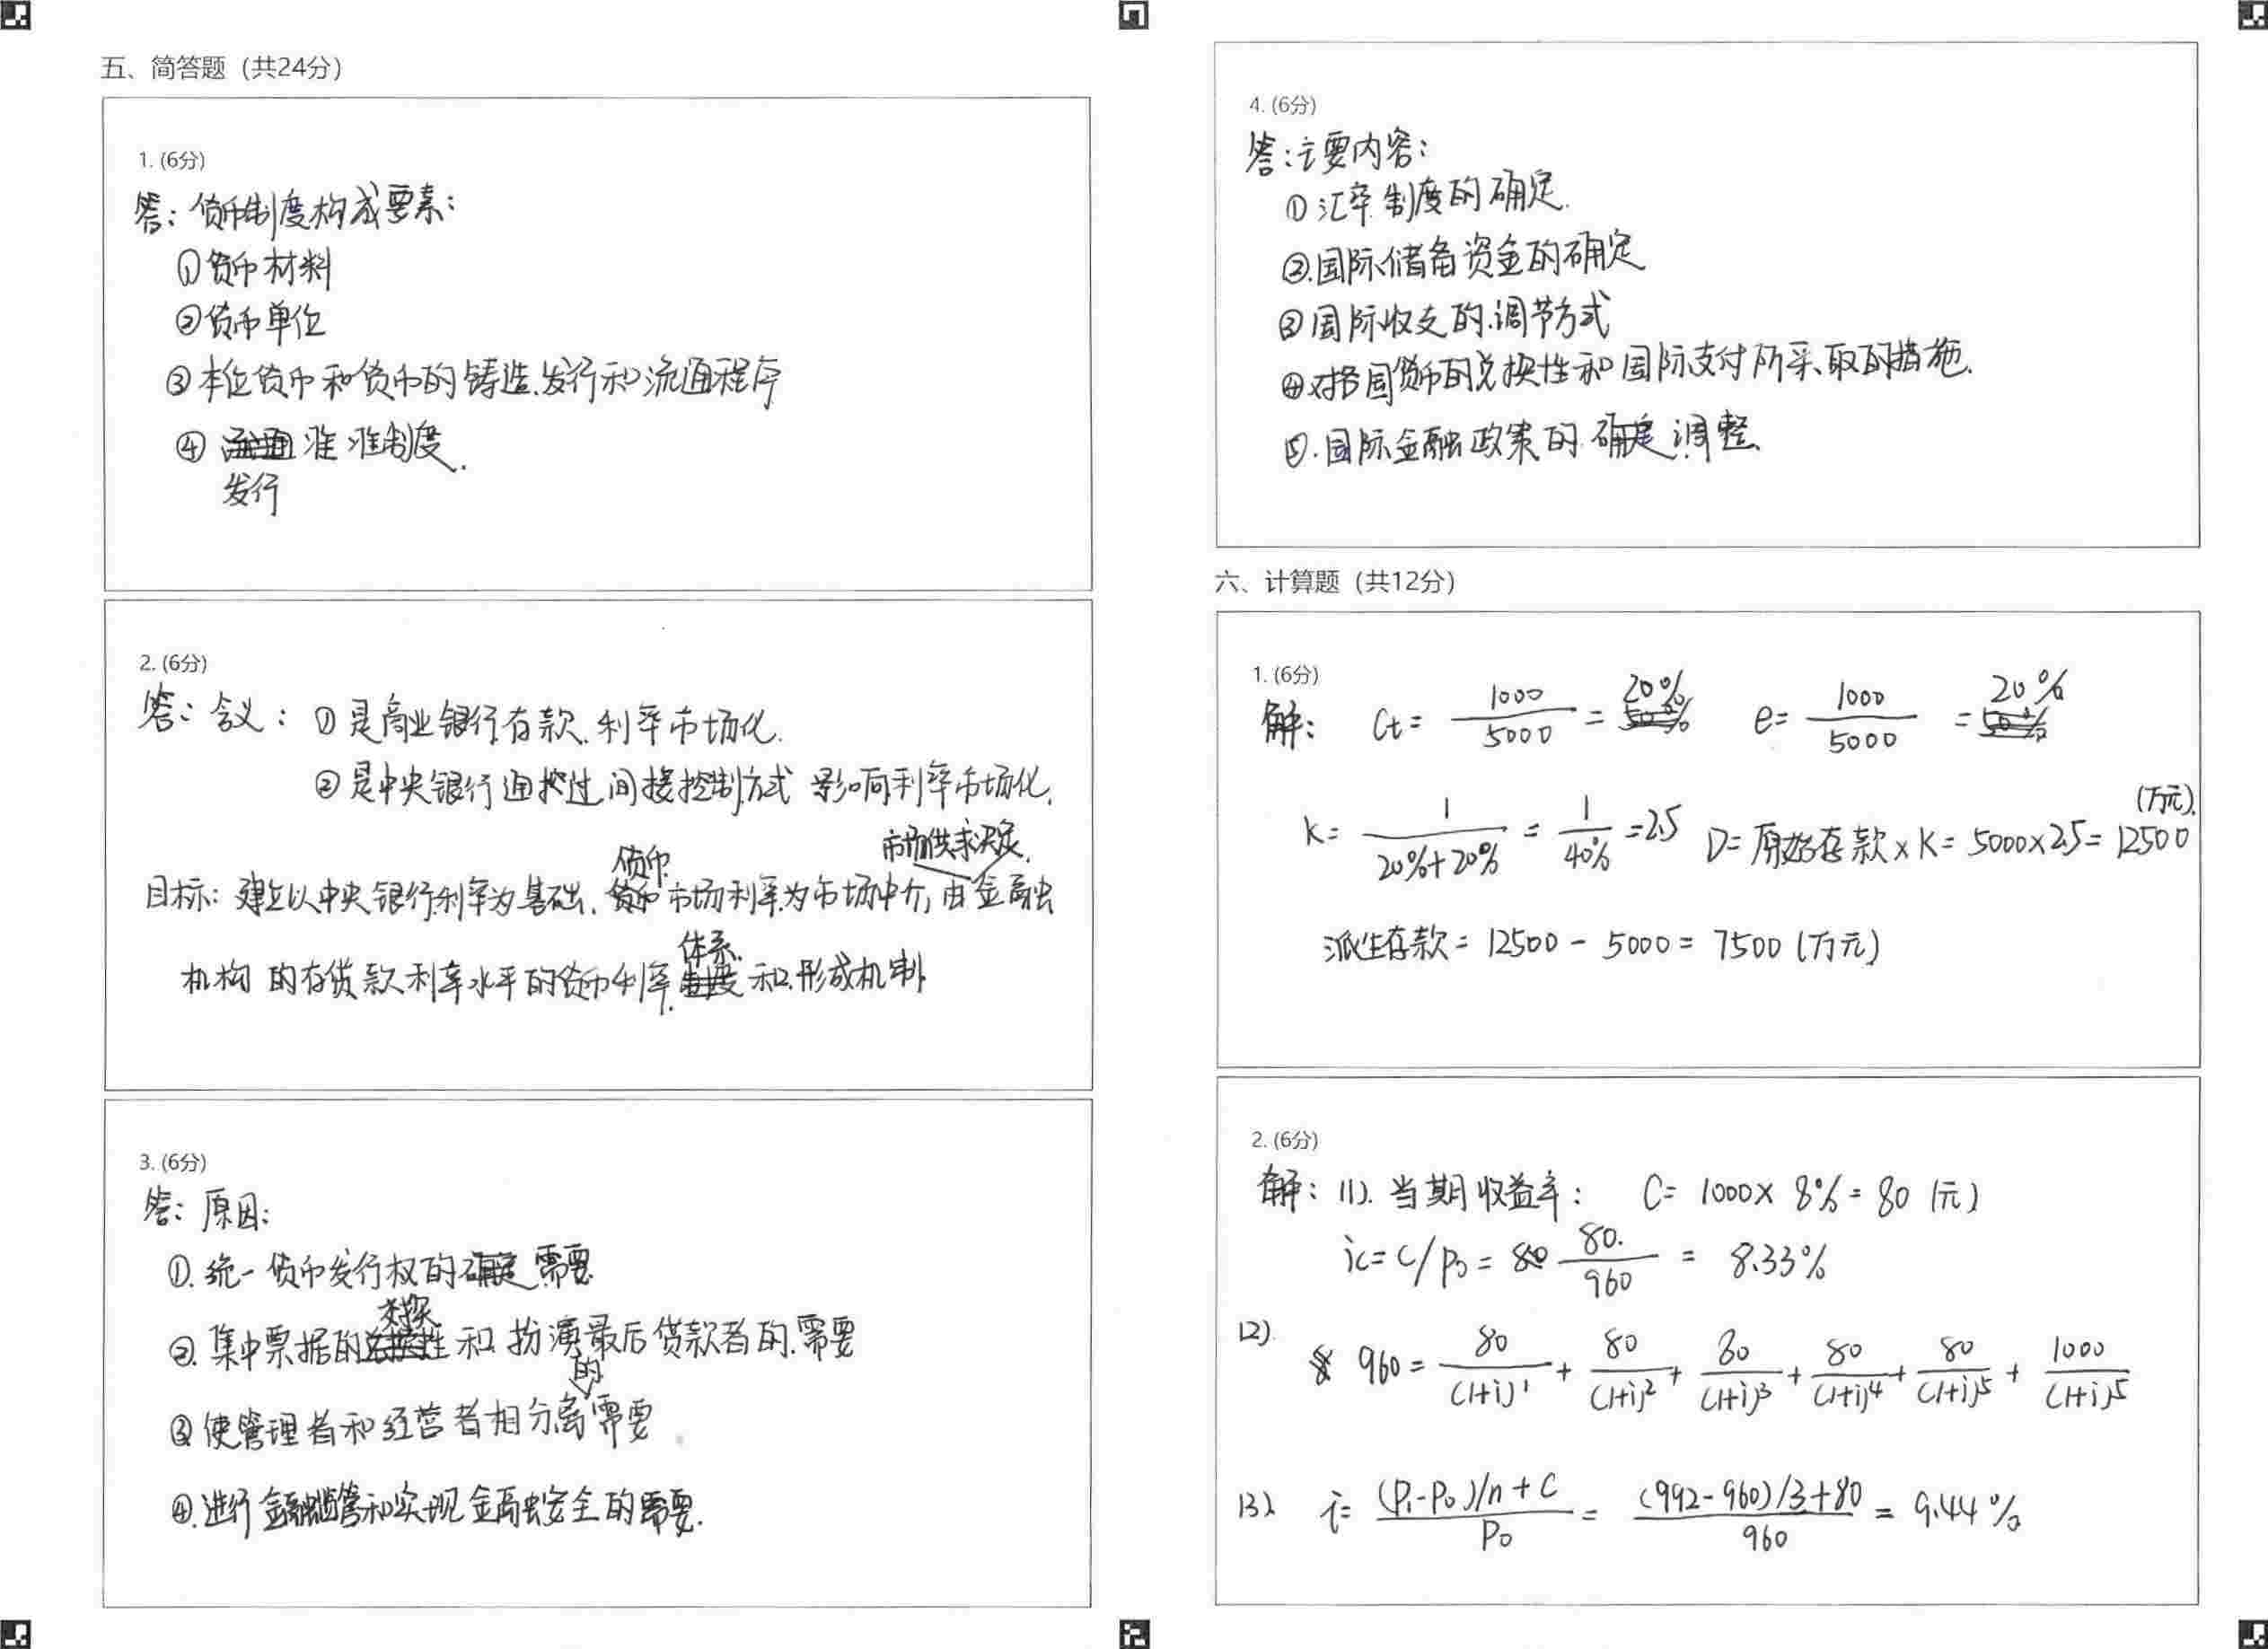 五、简答题（共24分）
1. (6分)
答：货币制度构成要素：
①货币材料
②货币单位
③本位货币和货币的铸造、发行和流通程序
④发行准准制度.
2. (6分)
答：含义：①是商业银行存款.利率市场化.
②是中央银行通过间接控制方式影响利率市场化.
目标：建立以中央银行利率为基础、货币市场利率为市场中介，由市场供求决定金融
机构的存贷款利率水平的货币利率体系和形成机制
3. (6分)
答：原因：
①.统一货币发行权的需要
②.集中票据的交换和扮演最后贷款者的需要
③使管理者和经营者相分离的需要
④.进行金融监管和实现金融安全的需要.
4. (6分)
答：主要内容：
①汇率制度的确定.
②.国际储备资金的确定
③国际收支的调节方式
④对各国货币的兑换性和国际支付所采取的措施.
⑤.国际金融政策的调整.
六、计算题（共12分）
1. (6分)
解： Ct= 1000/5000 = 20% e= 1000/5000 = 20%
K= 1/(20%+20%) = 1/40% =2.5 D=原始存款×K= 5000×2.5= 12500 (万元).
派生存款= 12500 - 5000= 7500 (万元)
2. (6分)
解：(1). 当期收益率： C= 1000× 8%= 80 (元)
ic= C/P0 = 80/960 = 8.33%
(2). 960= 80/(1+i)^1 + 80/(1+i)^2 + 80/(1+i)^3 + 80/(1+i)^4 + 80/(1+i)^5 + 1000/(1+i)^5
(3). i= ((P1-P0)/n+C)/P0 = ((992-960)/3+80)/960 = 9.44%